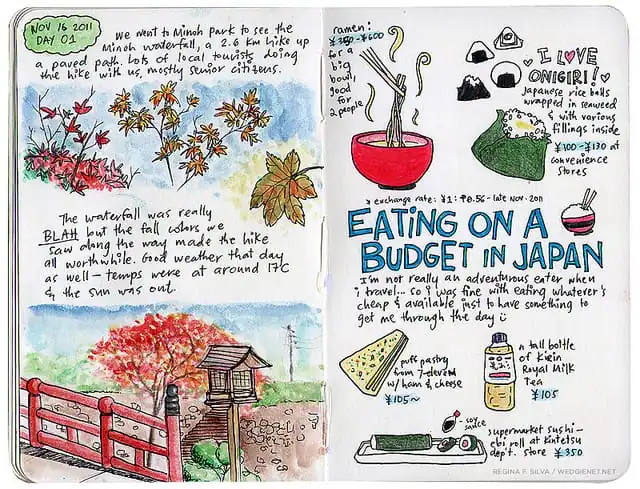 NOV 16 2011
DAY 01
we went to Minoh park to see the
Minoh waterfall, a 2.6 km hike up
a paved path. Lots of local tourists doing
the hike with us, mostly senior citizens.
The waterfall was really
BLAH but the fall colors we
saw along the way made the hike
all worthwhile. Good weather that day
as well - temps were at around 17C
& the sun was out.
ramen:
¥350-¥600
for a
big
bowl,
good
for
2 people
I ♥ LOVE
ONIGIRI!
Japanese rice balls
wrapped in seaweed
& with various
fillings inside
¥100-¥130 at
convenience
stores
* exchange rate: ¥1: ₱0.56 - late Nov. 2011
EATING ON A
BUDGET IN JAPAN
I'm not really an adventurous eater when
i travel... so i was fine with eating whatever's
cheap & available just to have something to
get me through the day
puff pastry
from 7-eleven
w/ ham & cheese
¥105~
a tall bottle
of Kirin
Royal Milk
Tea
¥105
soy
sauce
supermarket sushi-
ebi roll at Kintetsu
dep't. store ¥350
REGINA F. SILVA / WEDGIENET.NET